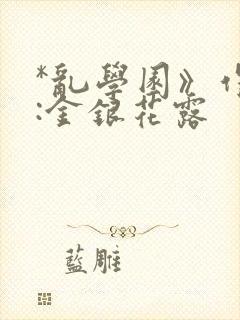 *亂學園》
:金銀花露
藍雕